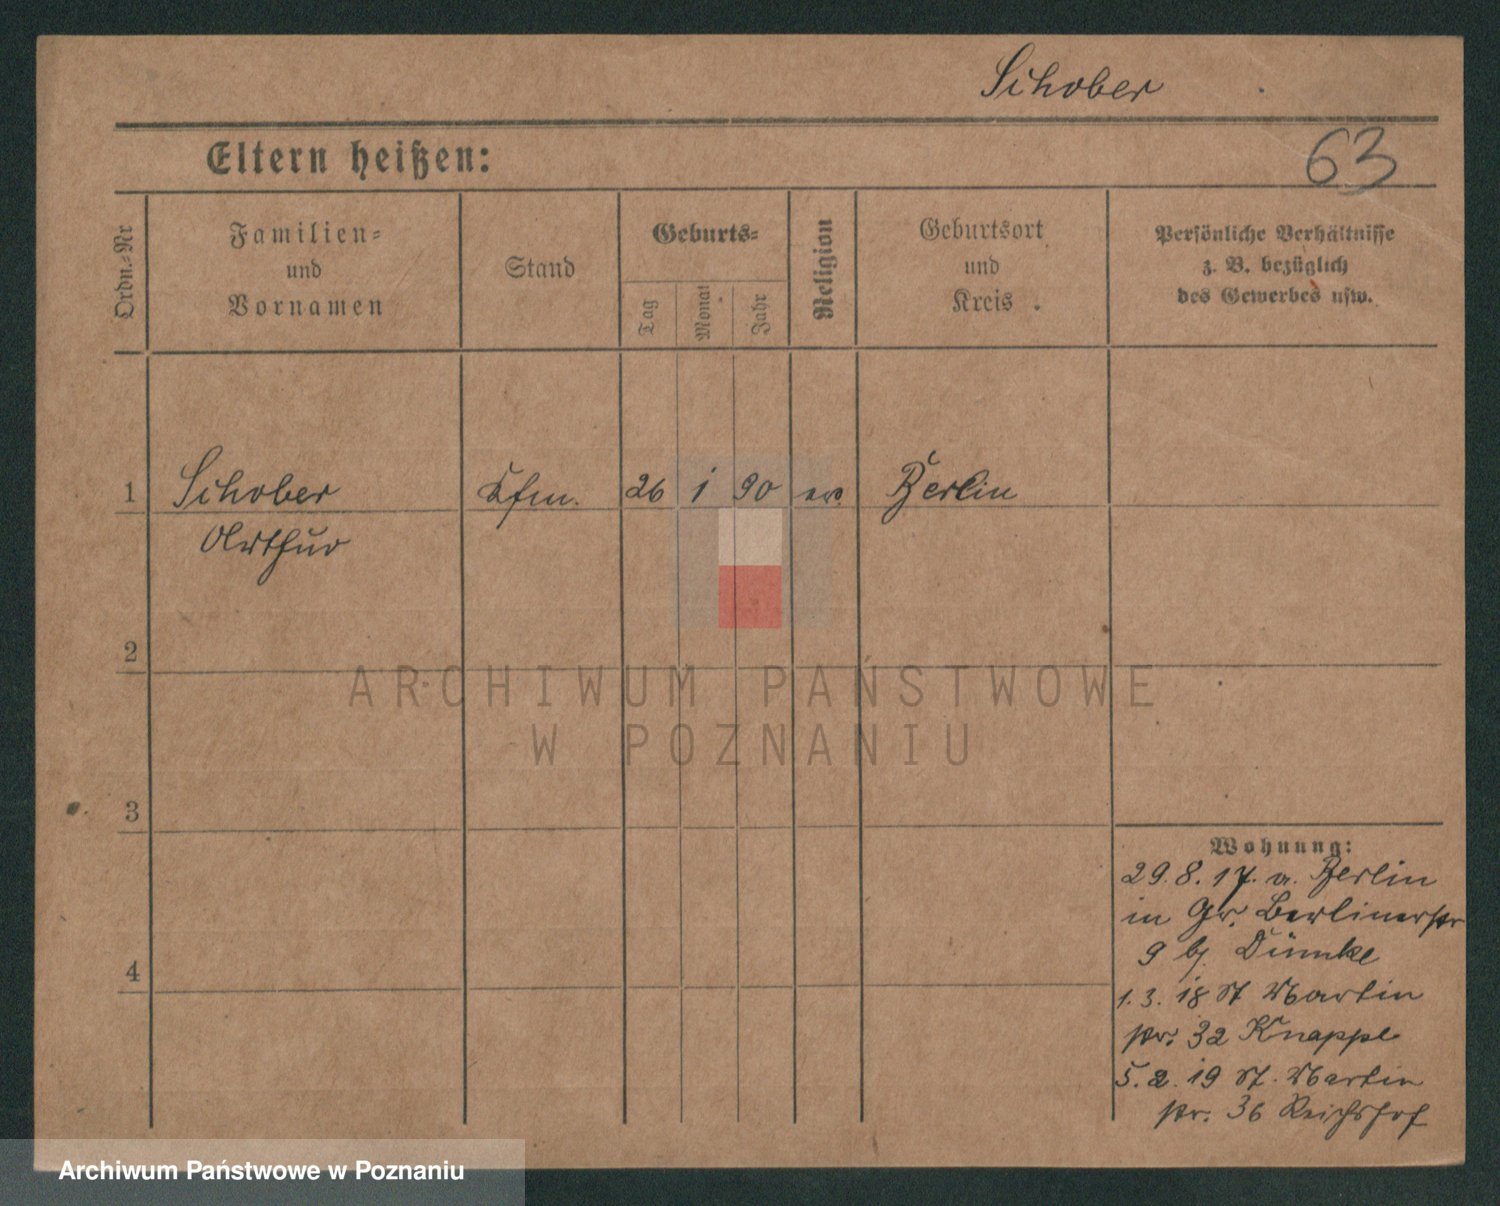 Schober
63
Eltern heißen:
Ordn.-Nr
Familien-
und
Vornamen
Stand
Geburts-
Tag
Monat
Jahr
Religion
Geburtsort
und
Kreis.
Persönliche Verhältnisse
z. B. bezüglich
des Gewerbes usw.
1 Schober Kfm. 26 1 90 ev. Berlin
Arthur
2
3
4
ARCHIWUM PAŃSTWOWE
W POZNANIU
Wohnung:
29. 8. 17. a. Berlin
in Gr. Berlinerstr
9 bj. Dümke
1. 3. 18 St Martin
str. 32 Knappe
5. 2. 19 St. Martin
str. 36 Reichshof
Archiwum Państwowe w Poznaniu